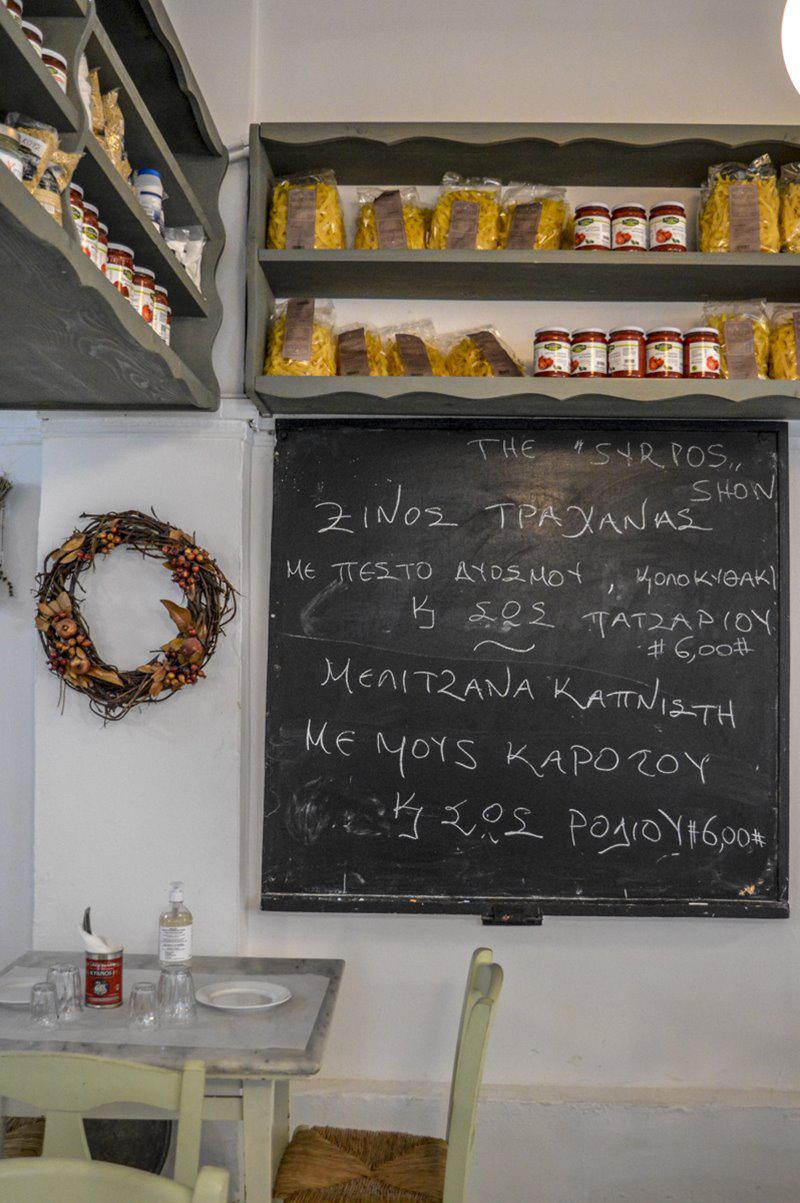 THE "SYRPOS„
SHOW
ΞΙΝΟΣ ΤΡΑΧΑΝΑΣ
ΜΕ ΠΕΣΤΟ ΔΥΟΣΜΟΥ , ΚΟΛΟΚΥΘΑΚΙ
Κ ΣΩΣ ΠΑΤΖΑΡΙΟΥ
#6,00#
ΜΕΛΙΤΖΑΝΑ ΚΑΠΝΙΣΤΗ
ΜΕ ΜΟΥΣ ΚΑΡΟΤΟΥ
Κ ΣΩΣ ΡΟΔΙΟΥ #6,00#